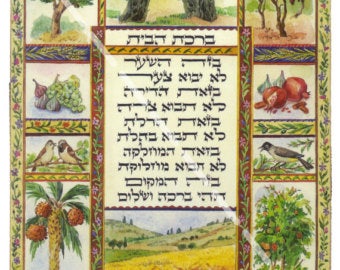 ברכת הבית
בזה השער
לא יבוא צער
בזאת הדירה
לא תבוא צרה
בזאת הדלת
לא תבוא בהלה
בזאת המחלקה
לא תבוא מחלוקה
בזה המקום
תהי ברכה ושלום